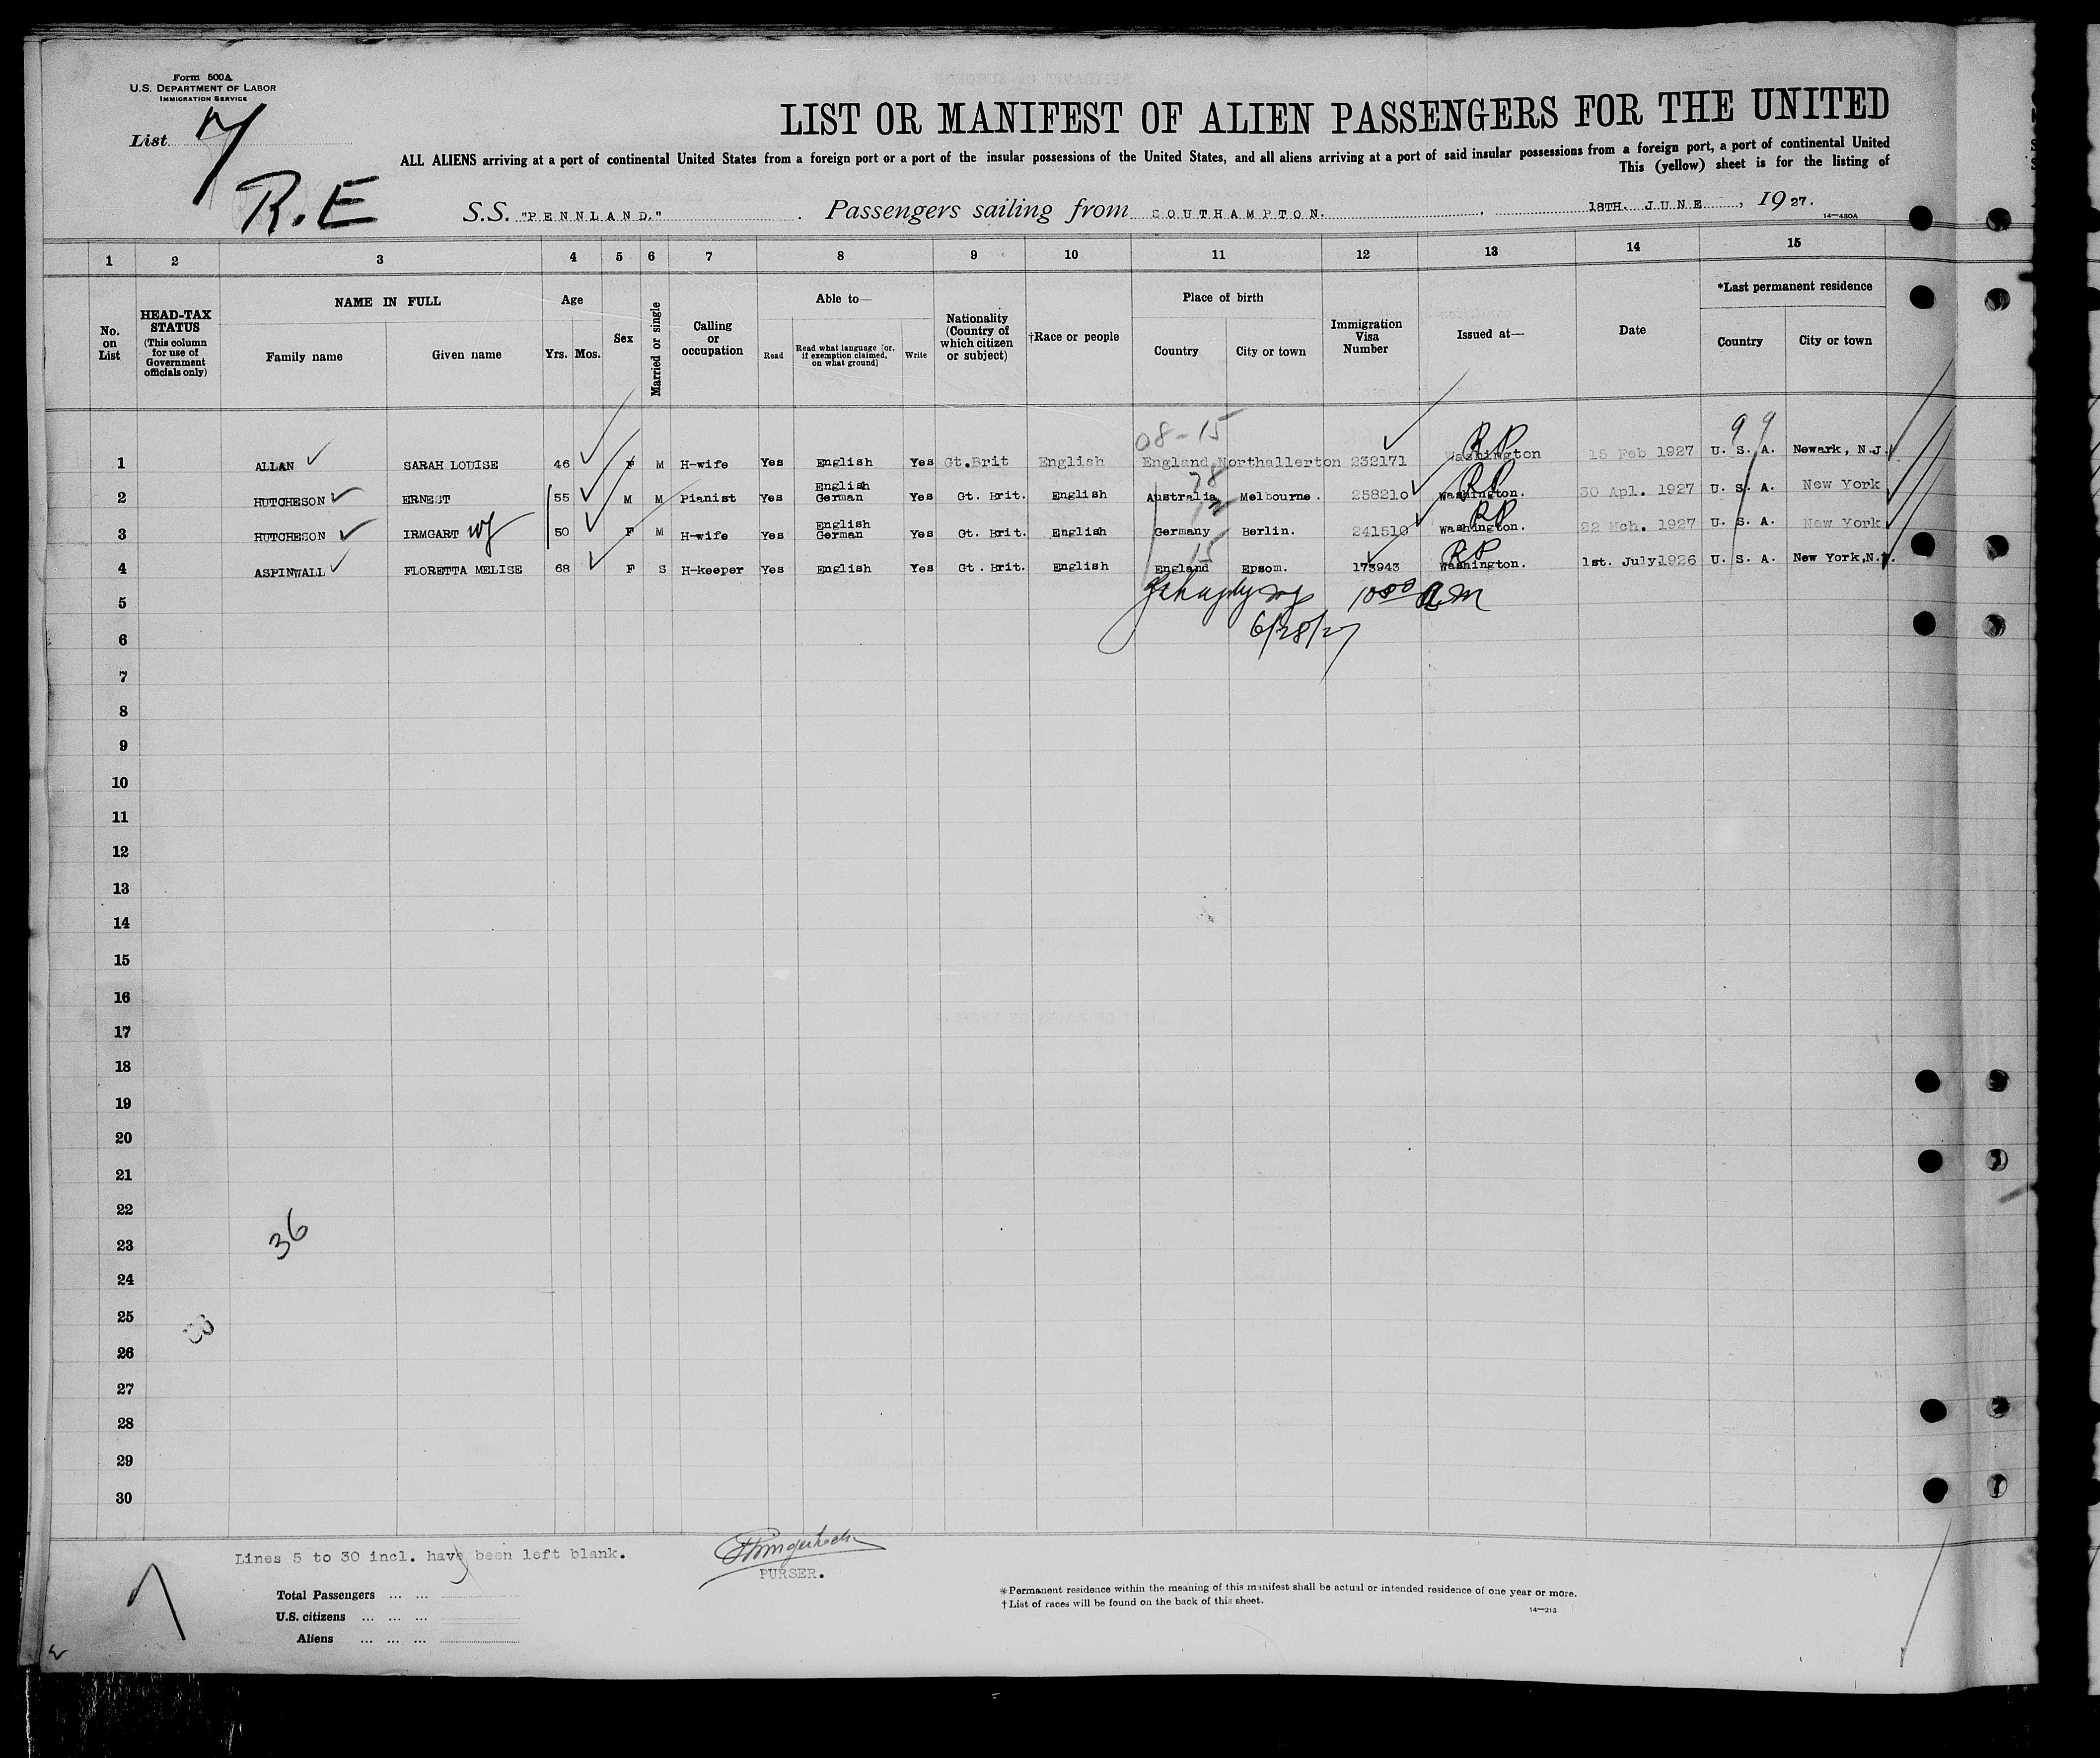 Form 500A
U.S. DEPARTMENT OF LABOR
IMMIGRATION SERVICE
List 7
R.E
LIST OR MANIFEST OF ALIEN PASSENGERS FOR THE UNITED
ALL ALIENS arriving at a port of continental United States from a foreign port or a port of the insular possessions of the United States, and all aliens arriving at a port of said insular possessions from a foreign port, a port of continental United
This (yellow) sheet is for the listing of
S.S. "PENNLAND." Passengers sailing from SOUTHAMPTON. , 18TH. JUNE , 1927.
14—430A
1 2 3 4 5 6 7 8 9 10 11 12 13 14 15
No. on List
HEAD-TAX STATUS (This column for use of Government officials only)
NAME IN FULL
Family name Given name
Age
Yrs. Mos.
Sex
Married or single
Calling or occupation
Able to—
Read Read what language [or, if exemption claimed, on what ground] Write
Nationality (Country of which citizen or subject)
†Race or people
Place of birth
Country City or town
Immigration Visa Number
Issued at—
Date
*Last permanent residence
Country City or town
08-15 RP 9 9
1 ALLAN SARAH LOUISE 46 F M H-wife Yes English Yes Gt.Brit English England Northallerton 232171 Washington 15 Feb 1927 U. S. A. Newark, N.J.
78 RP
2 HUTCHESON ERNEST 55 M M Pianist Yes English German Yes Gt. Brit. English Australia Melbourne. 258210 Washington. 30 Apl. 1927 U. S. A. New York
RP
3 HUTCHESON IRMGART wf 50 F M H-wife Yes English German Yes Gt. Brit. English Germany Berlin. 241510 Washington. 22 Mch. 1927 U. S. A. New York
15 RP
4 ASPINWALL FLORETTA MELISE 68 F S H-keeper Yes English Yes Gt. Brit. English England Epsom. 173943 Washington. 1st. July.1926 U. S. A. New York,N.Y.
5 10 00 am
6 6/28/27
7
8
9
10
11
12
13
14
15
16
17
18
19
20
21
22
23 36
24
25
26
27
28
29
30
Lines 5 to 30 incl. have been left blank.
PURSER.
7
Total Passengers ... ...
U.S. citizens ... ... ...
Aliens ... ... ...
*Permanent residence within the meaning of this manifest shall be actual or intended residence of one year or more.
†List of races will be found on the back of this sheet.
14—213